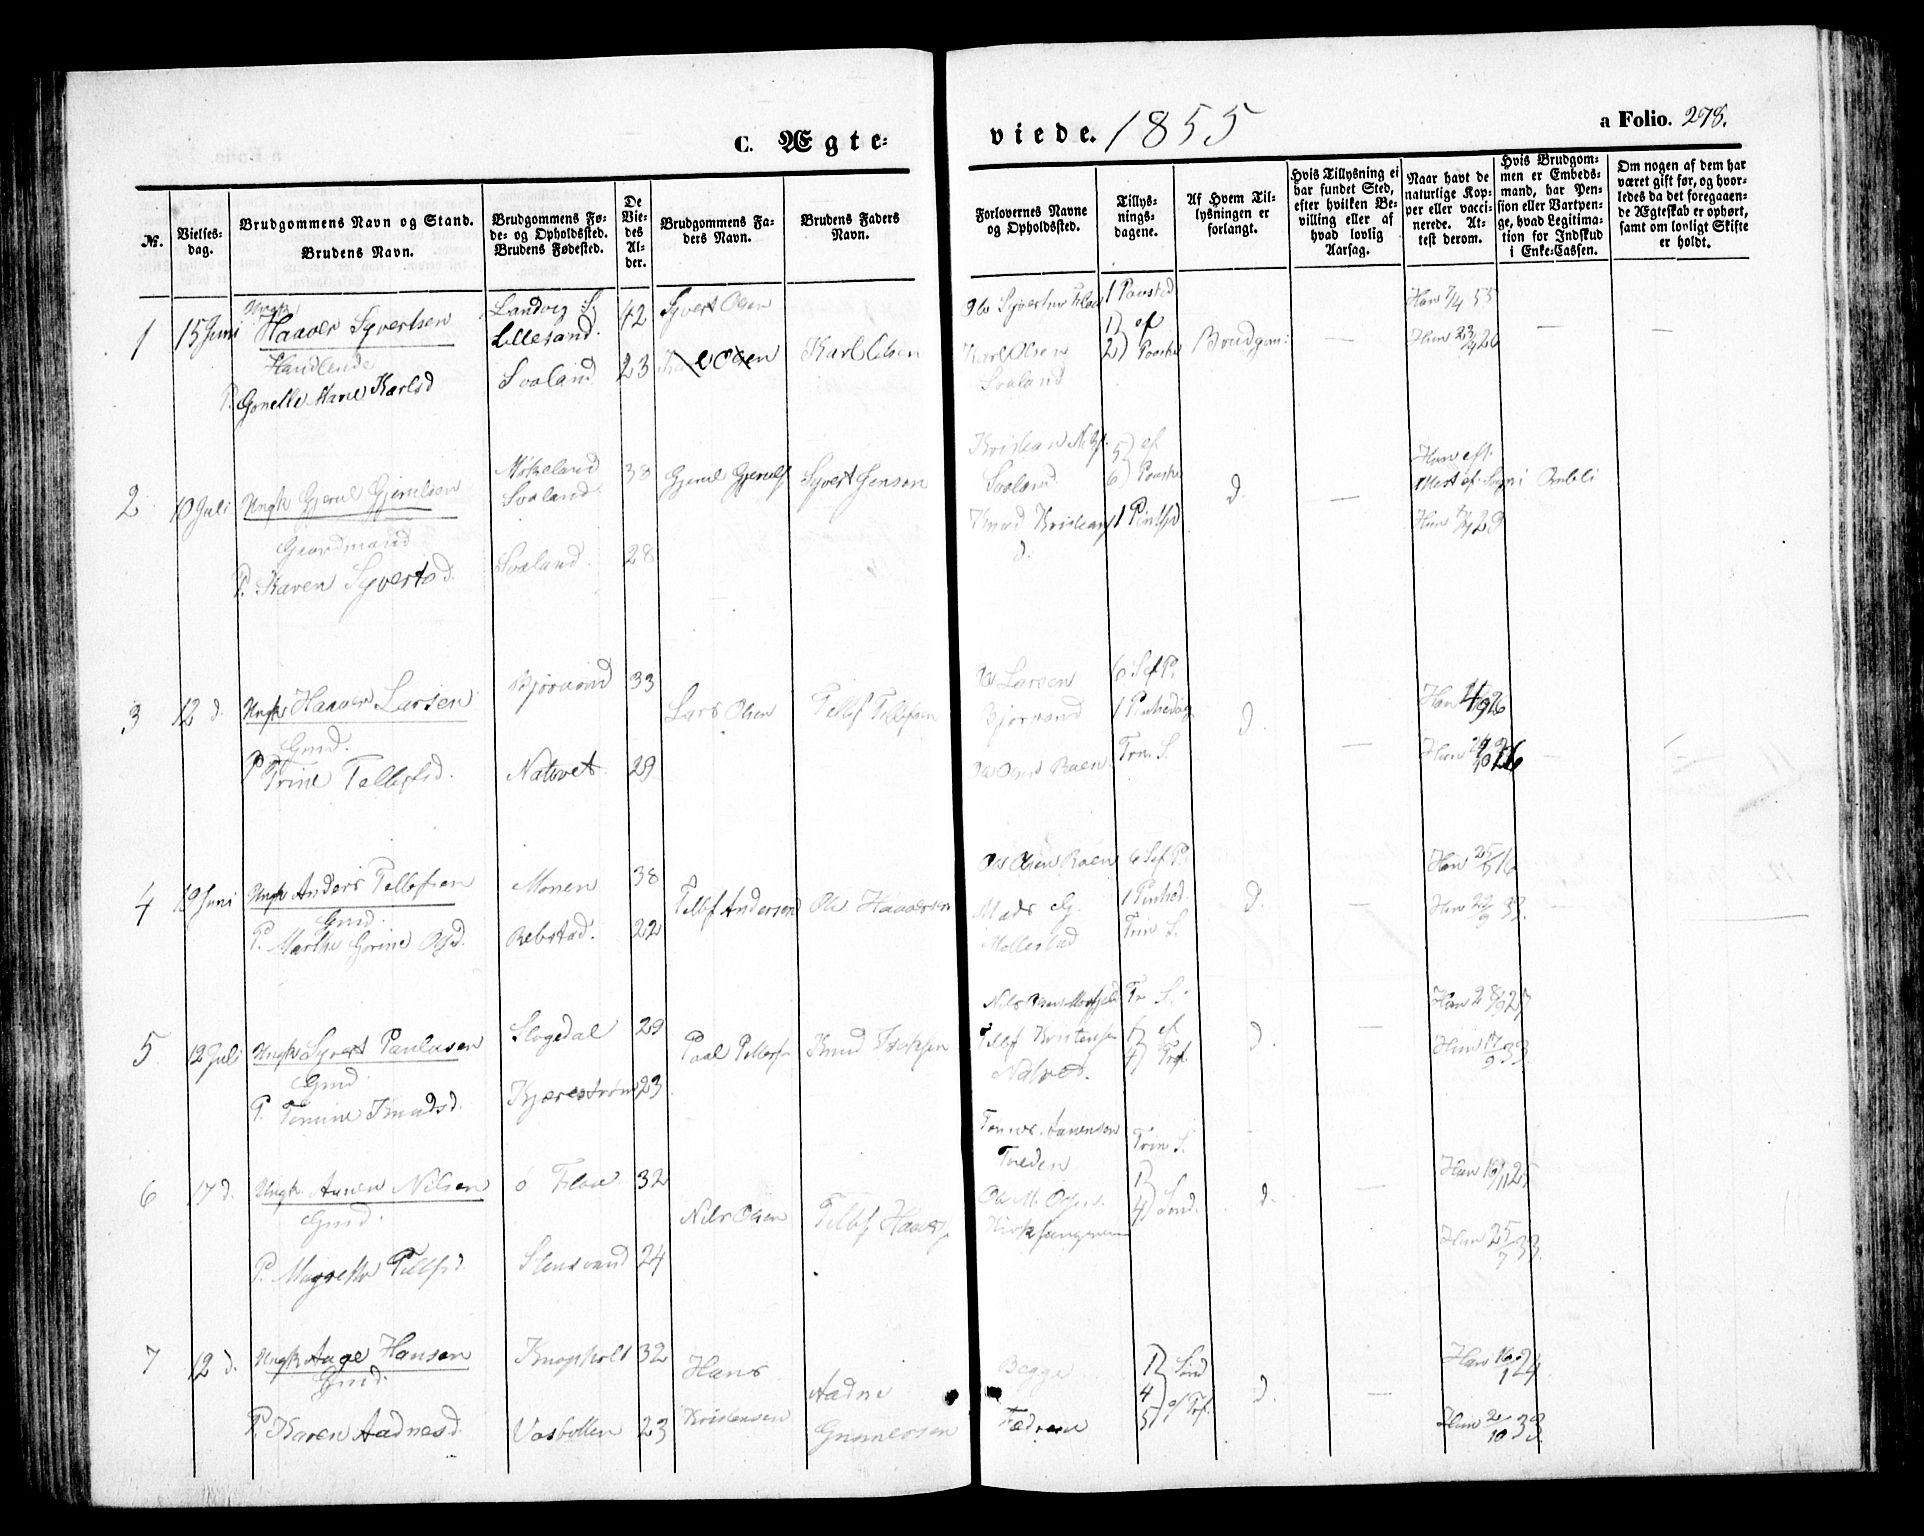 C. Ægte-
viede. 1855
a Folio. 278.
№.
Vielses-
dag.
Brudgommens Navn og Stand.
Brudens Navn.
Brudgommens Fø-
de- og Opholdssted.
Brudens Fødested.
De
Vie-
des
Al-
der.
Brudgommens Fa-
ders Navn.
Brudens Faders
Navn.
Forlovernes Navne
og Opholdssted.
Tillys-
nings-
dagene.
Af Hvem Til-
lysningen er
forlangt.
Hvis Tillysning ei
har fundet Sted,
efter hvilken Be-
villing eller af
hvad lovlig
Aarsag.
Naar havt de
naturlige Kop-
per eller vacci-
nerede. At-
test derom.
Hvis Brudgom-
men er Embeds-
mand, har Pen-
sion eller Vartpen-
ge, hvad Legitima-
tion for Indskud
i Enke-Cassen.
Om nogen af dem har
været gift før, og hvor-
ledes da det foregaaen-
de Ægteskab er ophørt,
samt om lovligt Skifte
er holdt.
1 15 Juni Ungk
Haaver Syvertsen
Handlende
P. Gonelle Marie Karlsd
Landvig S
Lillesand.
Svaland
42
23
Syvert Olsen
Karl Olsen
Ole Syvertsen Flaa
Karl Olsen
Svaland
1 Paasked
1) ef
2) Paaske
Brudgom:
Han 7/4 55
Hun 23/9 26
2 10 Juli Ungk Gjerul Gjerulsen
Gaardmand
P. Karen Syvertsd.
Svaland
Svaland.
38
28
Gjerul Gjeruls
Syvert Jensen
Kristian Nils.
Svaland.
Knud Kristians
d.
5) ef
6) Paaske
1 Pintsd
d.
Han eft.
Attest ef. Sogni Ombli
3 12 d. Ungk Haaver Larsen
Gmd.
P Trine Tellefsd.
Bjorvand
Natvet
33
29
Lars Olsen
Tellef Tellefsen
Ole Larsen
Bjorvand
Ole Olsen Raen
6 S ef P.
1 Pintsedag
Trin. S.
d
4 19 Juni Ungk Anders Tellefsen
Gmd.
P. Marthe Gorine Olsd.
Monen
Rebstad.
38
22
Tellef Andersen
Ole Haaversen
Ole Olsen Raen
Mads G.
Mollestad
6 S ef P.
1 Pintsed.
Trin S.
d.
Han 25/5 16
Hun 22/9 33.
5 12 Juli Ungk Syvert Paulusen
Gmd
P. Tomine Knudsd.
Slogedal
Kjærestrøm
29
23
Knud
Tellef Kristensen
Natved.
Tr S.
ef
4) Trf
d
Han 28/9 27
Hun 17/9 33
6 17 d. Ungk Aanen Nilsen
Gmd.
P. Magrethe Tellfsd.
ø Flaa
Stensvand
32
24
Nils Olsen
Tellef Haavers
Tomas Aanensen
Treden
Kirkesangeren
Trin S.
4) Sond.
d.
Hun 25/7 33.
7 12 d. Ungk Aage Hansen
Gmd.
P. Karen Aadnesd.
Knapholt
Vasbotten
32
23
Hans
Kristensen
Aadne
Gunnersen
Begge
Fædrene
1) Sond
4
5) ef Trf.
d
Han 16/1 24
Hun 2/10 33